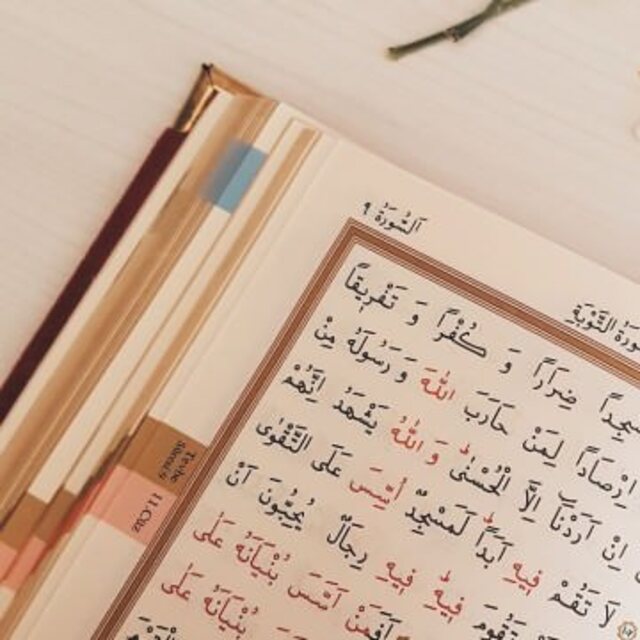 اَلسُّورَةُ ٩
سُورَةُ التَّوْبَةِ
ضِرَارًا وَ كُفْرًا وَ تَفْرٖيقًا
اِرْصَادًا لِمَنْ حَارَبَ اللّٰهَ وَ رَسُولَهُ مِنْ
اِنْ اَرَدْنَٓا اِلَّا الْحُسْنٰى وَ اللّٰهُ يَشْهَدُ اِنَّهُمْ
لَا تَقُمْ فٖيهِ اَبَدًا لَمَسْجِدٌ اُسِّسَ عَلَى التَّقْوٰى
تَقُومَ فٖيهِ فٖيهِ رِجَالٌ يُحِبُّونَ اَنْ
اَفَمَنْ اَسَّسَ بُنْيَانَهُ عَلٰى
بُنْيَانَهُ عَلٰى
Tevbe
Sûresi
11.Cüz